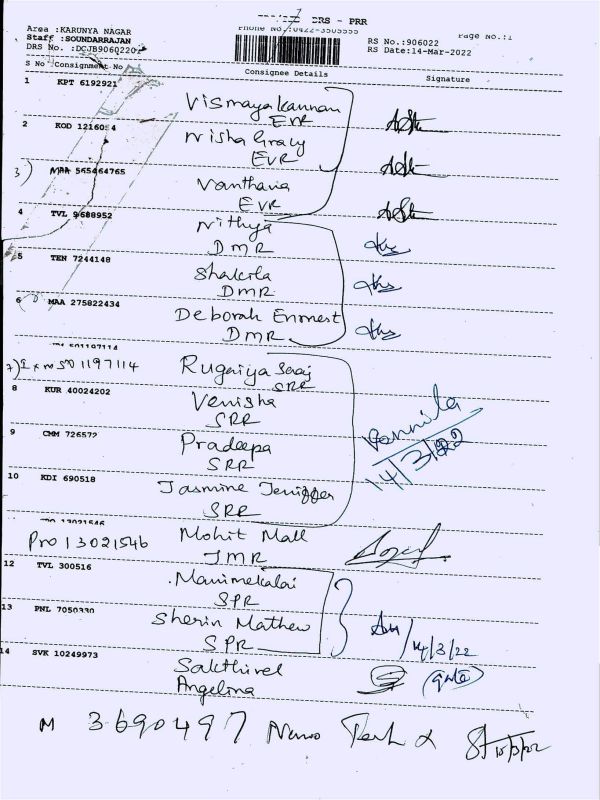 DRS - PRR
Area :KARUNYA NAGAR
Phone No.:0422-3505555
Page No.:1
Staff :SOUNDARRAJAN
RS No.:906022
DRS No. :DCJB906022
RS Date:14-Mar-2022
S No Consignment No
Consignee Details
Signature
1 KPT 6192921
Vismaya Kannan
EVR
2 KOD 1216084
Nisha Graly
EVR
3) MAA 565464765
Vanthana
EVR
4 TVL 9688952
Nithya
DMR
5 TEN 7244148
Shakila
DMR
6 MAA 275822434
Deborah Enmest
DMR
501197114
7) 501197114
Rugaiya Seraj
SRR
8 KUR 40024202
Venisha
SRR
9 CMM 726572
Pradeepa
SRR
Vennila
14/3/22
10 KDI 690518
Jasmine Jeniffer
SRR
13021546
Pro 13021546
Mohit Mall
JMR
12 TVL 300516
Manimekalai
SPR
13 PNL 7050330
Sherin Mathew
SPR
14/3/22
14 SVK 10249973
Sakthivel
Angelina
M 3690497 Nano Tech &